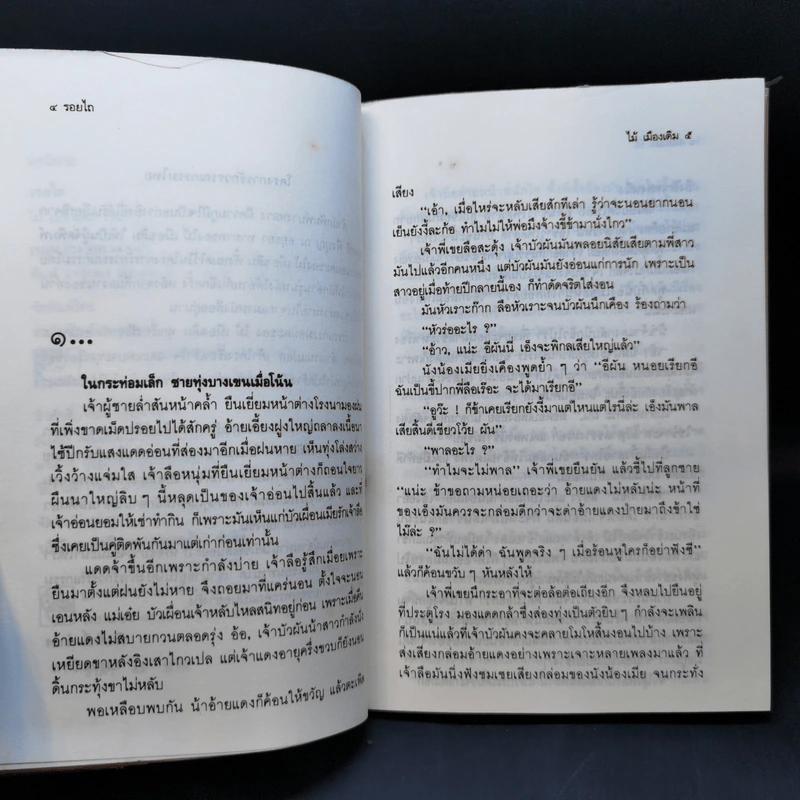 ๔ รอยไถ
๑...
ในกระท่อมเล็ก ชายทุ่งบางเขนเมื่อโน้น
เจ้าผู้ชายล่ำสันหน้าคล้ำ ยืนเยี่ยมหน้าต่างโรงนามองฝน
ที่เพิ่งขาดเม็ดปรอยไปได้สักครู่ อ้ายเอี้ยงฝูงใหญ่ถลาลงเนื้อนา
ไซ้ปีกรับแสงแดดอ่อนที่ส่องมาอีกเมื่อฝนหาย เห็นทุ่งโล่งสว่าง
เวิ้งว้างแจ่มใส เจ้าลือหนุ่มที่ยืนเยี่ยมหน้าต่างก็ถอนใจยาว
ผืนนาใหญ่ลิบ ๆ นี้หลุดเป็นของเจ้าอ่อนไปสิ้นแล้ว และที่
เจ้าอ่อนยอมให้เช่าทำกิน ก็เพราะมันเห็นแก่บัวเผื่อนเมียรักเจ้าลือ
ซึ่งเคยเป็นคู่ติดพันกันมาแต่เก่าก่อนเท่านั้น
แดดจ้าขึ้นอีกเพราะกำลังบ่าย เจ้าลือรู้สึกเมื่อยเพราะ
ยืนมาตั้งแต่ฝนยังไม่หาย จึงถอยมาที่แคร่นอน ตั้งใจจะนอน
เอนหลัง แม่เอ๋ย บัวเผื่อนเจ้าหลับไหลสนิทอยู่ก่อน เพราะเมื่อคืน
อ้ายแดงไม่สบายกวนตลอดรุ่ง อ้อ, เจ้าบัวผันน้าสาวกำลังนั่ง
เหยียดขาหลังอิงเสาไกวเปล แต่เจ้าแดงอายุครึ่งขวบก็ยังนอน
ดิ้นกระทุ้งขาไม่หลับ
พอเหลือบพบกัน น้าอ้ายแดงก็ค้อนให้ขวัญ แล้วตะเพิด
ไม้ เมืองเดิม ๕
เสียง
“เอ้า, เมื่อไหร่จะหลับเสียสักทีเล่า รู้ว่าจะนอนยากนอน
เย็นยังงี้ละก้อ ทำไมไม่ให้พ่อมึงจ้างขี้ข้ามานั่งไกว”
เจ้าพี่เขยลือสะดุ้ง เจ้าบัวผันมันพลอยนิสัยเสียตามพี่สาว
มันไปแล้วอีกคนหนึ่ง แต่บัวผันมันยังอ่อนแก่การนัก เพราะเป็น
สาวอยู่เมื่อท้ายปีกลายนี้เอง ก็ทำดัดจริตใส่งอน
มันหัวเราะก๊าก ลือหัวเราะจนบัวผันนึกเคือง ร้องถามว่า
“หัวร่ออะไร ?”
“อ้าว, แน่ะ อีผันนี่ เอ็งจะพิกลเสียใหญ่แล้ว”
นังน้องเมียยิ่งเคืองพูดย้ำ ๆ ว่า “อีผัน หนอยเรียกอี
ฉันเป็นขี้ปากพี่ลือเรือะ จะได้มาเรียกอี”
“อูวะ ! ก็ข้าเคยเรียกยังงี้มาแต่ไหนแต่ไรนี่ล่ะ เอ็งมันพาล
เสียสิ้นดีเชียวโว้ย ผัน”
“พาลอะไร ?”
“ทำไมจะไม่พาล” เจ้าพี่เขยยืนยัน แล้วชี้ไปที่ลูกชาย
“แน่ะ ข้าขอถามหน่อยเถอะว่า อ้ายแดงไม่หลับน่ะ หน้าที่
ของเอ็งมันควรจะกล่อมดีกว่าจะด่าอ้ายแดงป่ายมาถึงข้าใช่
ไม๊ล่ะ ?”
“ฉันไม่ได้ด่า ฉันพูดจริง ๆ เมื่อร้อนหูใครก็อย่าฟังซี”
แล้วก็ค้อนขวับ ๆ หันหลังให้
เจ้าพี่เขยนึกระอาที่จะต่อล้อต่อเถียงอีก จึงหลบไปยืนอยู่
ที่ประตูโรง มองแดดกล้าซึ่งส่องทุ่งเป็นตัวยิบ ๆ กำลังจะเพลิน
ก็เป็นแน่แล้วที่เจ้าบัวผันคงจะคลายโมโหสิ้นงอนไปบ้าง เพราะ
ส่งเสียงกล่อมอ้ายแดงอย่างเพราะเจาะหลายเพลงมาแล้ว ที่
เจ้าลือมันนิ่งฟังชมเชยเสียงกล่อมของนังน้องเมีย จนกระทั่ง